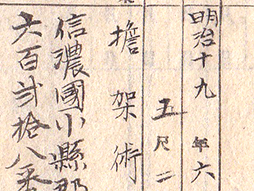 明治十九年六
五尺二
擔架術
信濃國小縣郡
六百弐拾八番